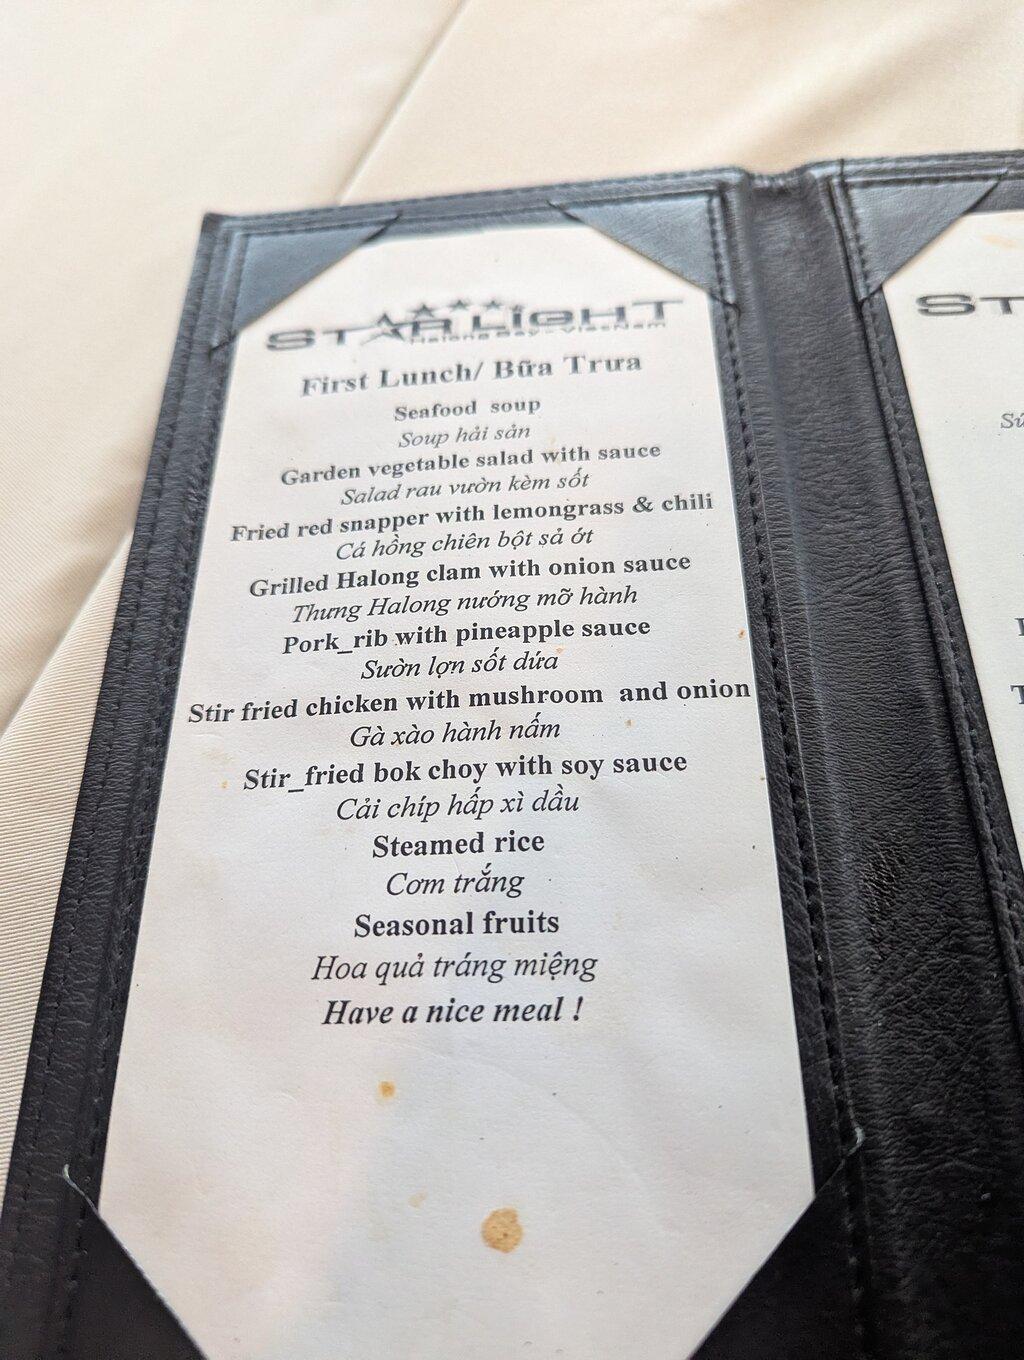 STARLIGHT
Halong Bay - VietNam
First Lunch/ Bữa Trưa
Seafood soup
Soup hải sản
Garden vegetable salad with sauce
Salad rau vườn kèm sốt
Fried red snapper with lemongrass & chili
Cá hồng chiên bột sả ớt
Grilled Halong clam with onion sauce
Thưng Halong nướng mỡ hành
Pork_rib with pineapple sauce
Sườn lợn sốt dứa
Stir fried chicken with mushroom and onion
Gà xào hành nấm
Stir_fried bok choy with soy sauce
Cải chíp hấp xì dầu
Steamed rice
Cơm trắng
Seasonal fruits
Hoa quả tráng miệng
Have a nice meal !